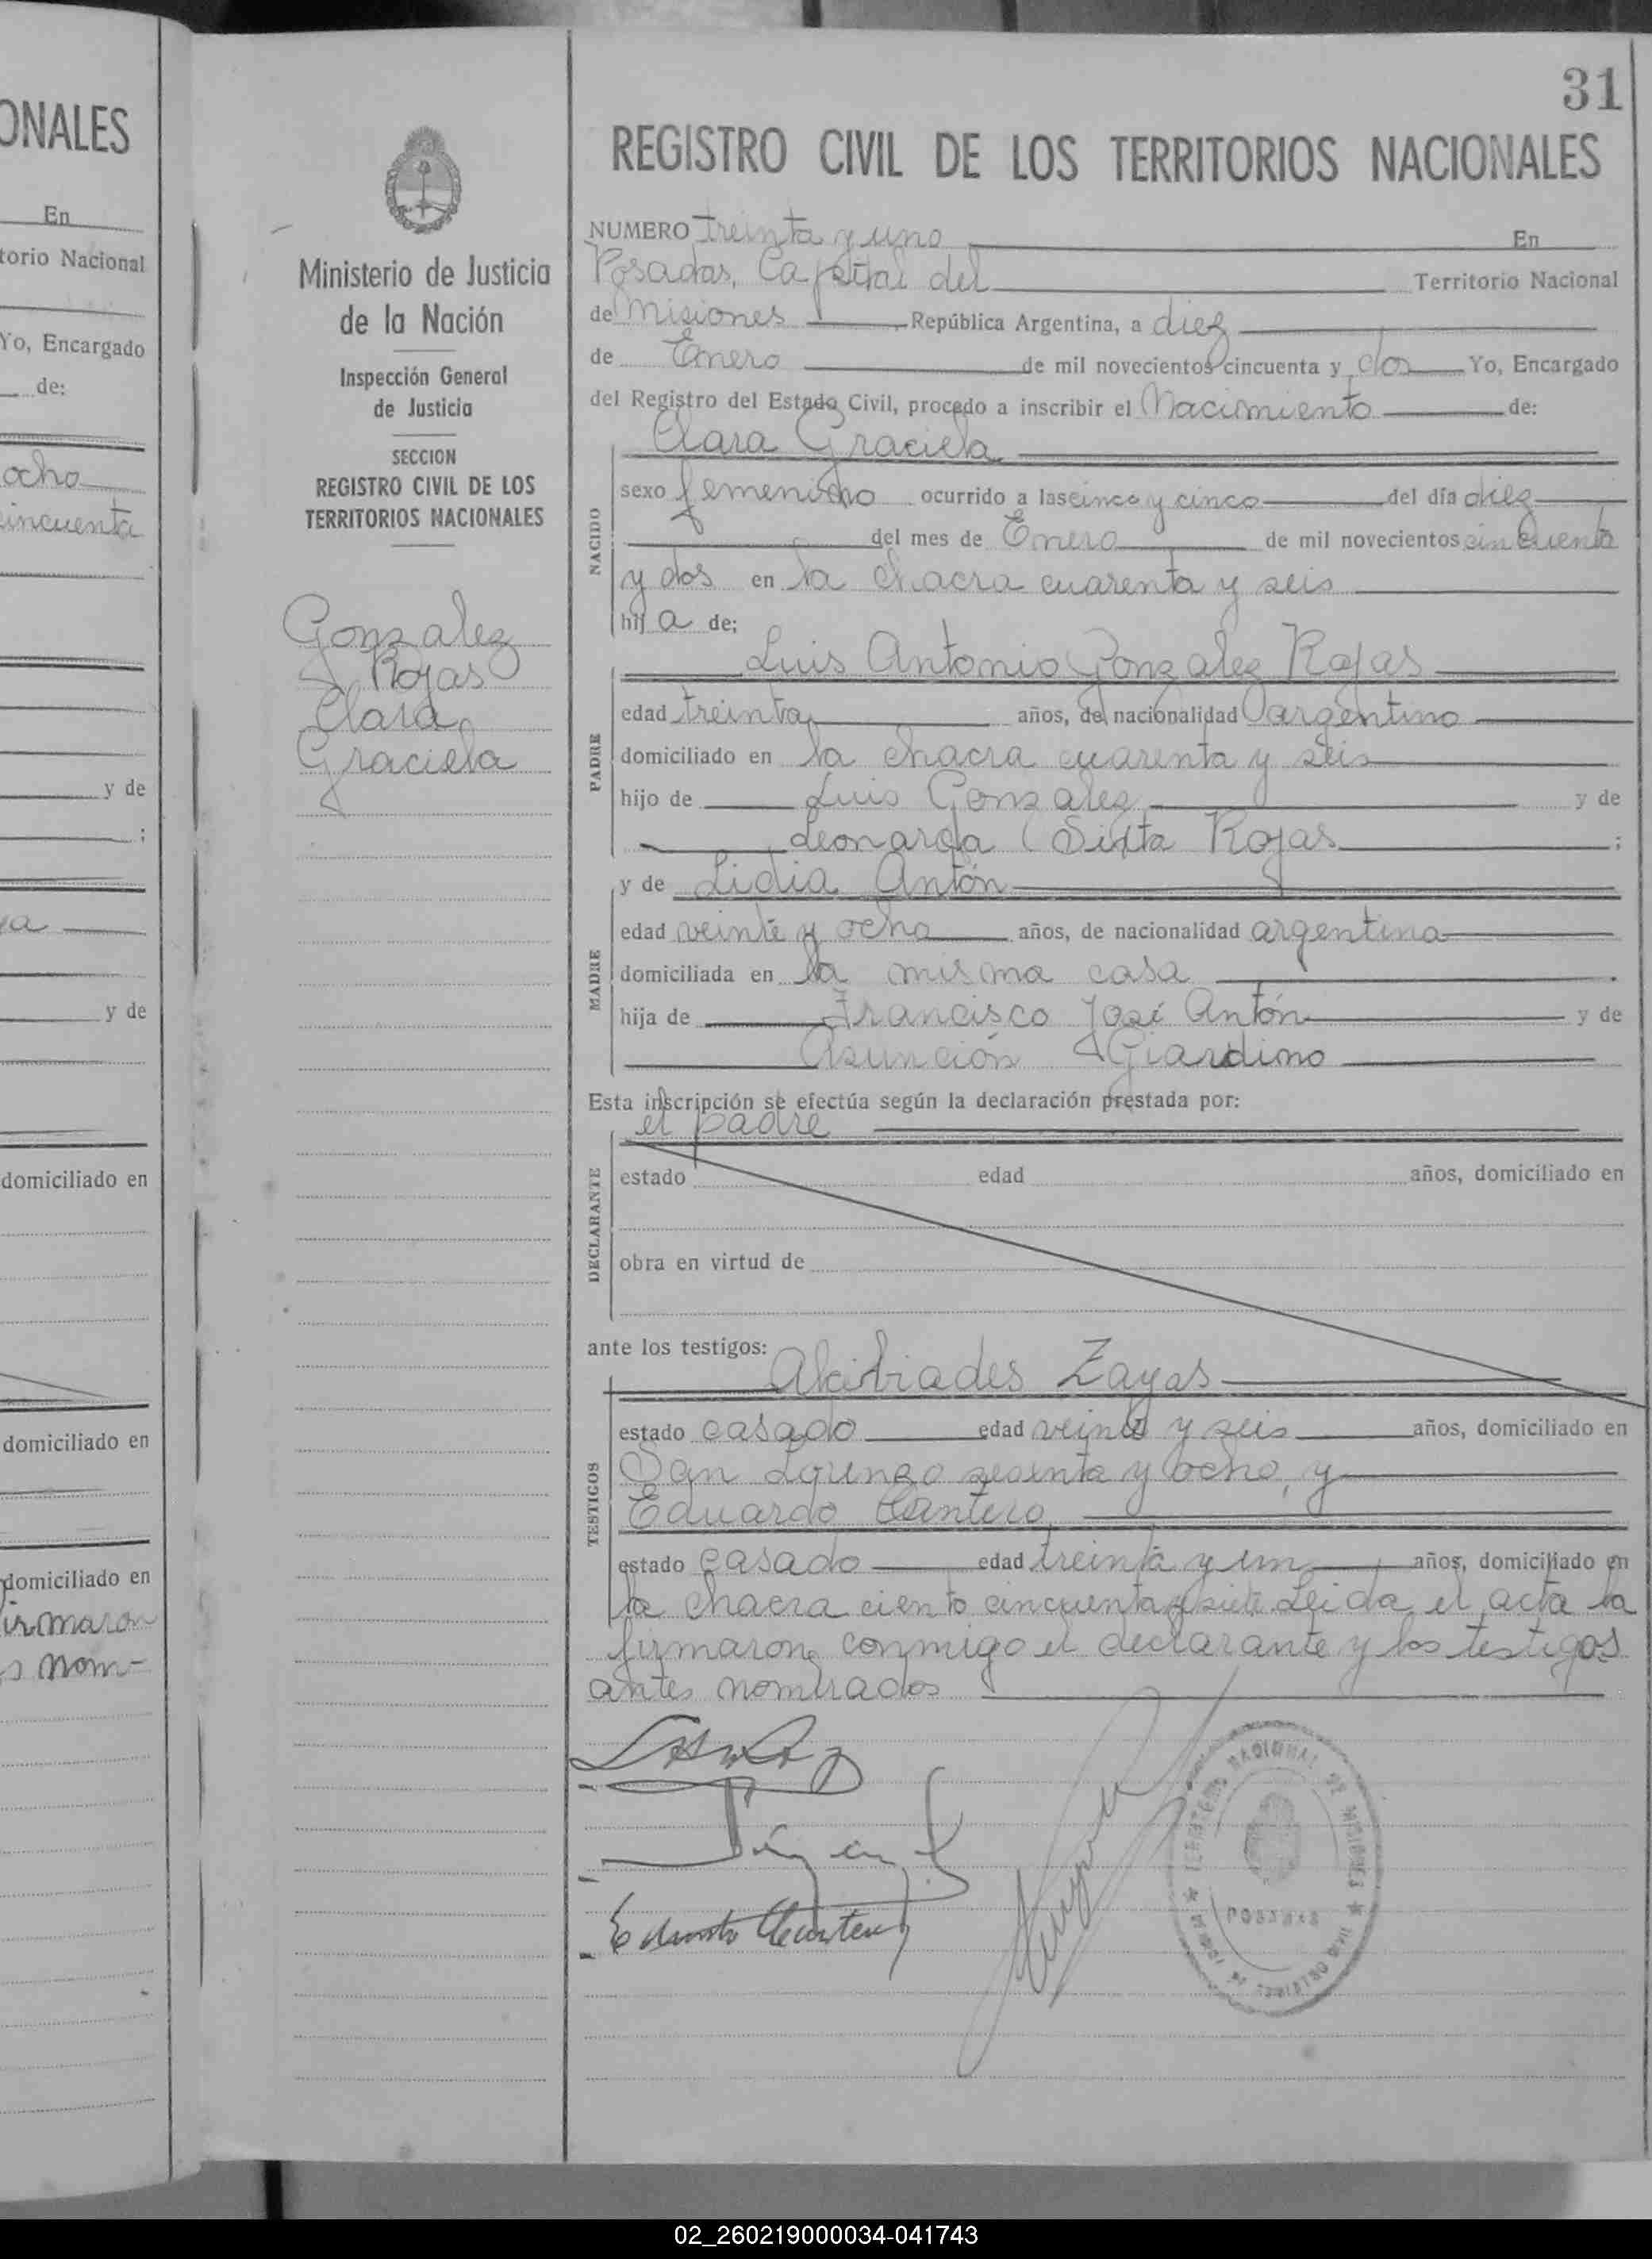 ONALES
En
torio Nacional
Yo, Encargado
de:
ocho
cincuenta
y de
;
ya
y de
domiciliado en
domiciliado en
domiciliado en
firmaron
s nom-
Ministerio de Justicia
de la Nación
Inspección General
de Justicia
SECCION
REGISTRO CIVIL DE LOS
TERRITORIOS NACIONALES
Gonzalez
Rojas
Clara
Graciela
31
REGISTRO CIVIL DE LOS TERRITORIOS NACIONALES
NUMERO treinta y uno En
Posadas, Capital del Territorio Nacional
de Misiones República Argentina, a diez
de Enero de mil novecientos cincuenta y dos Yo, Encargado
del Registro del Estado Civil, procedo a inscribir el Nacimiento de:
Clara Graciela
NACIDO
sexo femenino ocurrido a las cinco y cinco del día diez
del mes de Enero de mil novecientos cincuenta
y dos en la chacra cuarenta y seis
hij a de;
Luis Antonio Gonzalez Rojas
PADRE
edad treinta años, de nacionalidad argentino
domiciliado en la chacra cuarenta y seis
hijo de Luis Gonzalez y de
Leonarda Sixta Rojas ;
y de Lidia Antón
MADRE
edad veinte y ocho años, de nacionalidad argentina
domiciliada en la misma casa
hija de Francisco José Antón y de
Asunción Giardino
Esta inscripción se efectúa según la declaración prestada por:
el padre
DECLARANTE
estado edad años, domiciliado en
obra en virtud de
ante los testigos:
Alcibiades Zayas
TESTIGOS
estado casado edad veinte y seis años, domiciliado en
San Lorenzo sesenta y ocho, y
Eduardo Cantero
estado casado edad treinta y un años, domiciliado en
la chacra ciento cincuenta y siete Leida el acta la
firmaron conmigo el declarante y los testigos
antes nombrados
Eduardo Cantero
TERRITORIO NACIONAL DE MISIONES
POSADAS
02_260219000034-041743